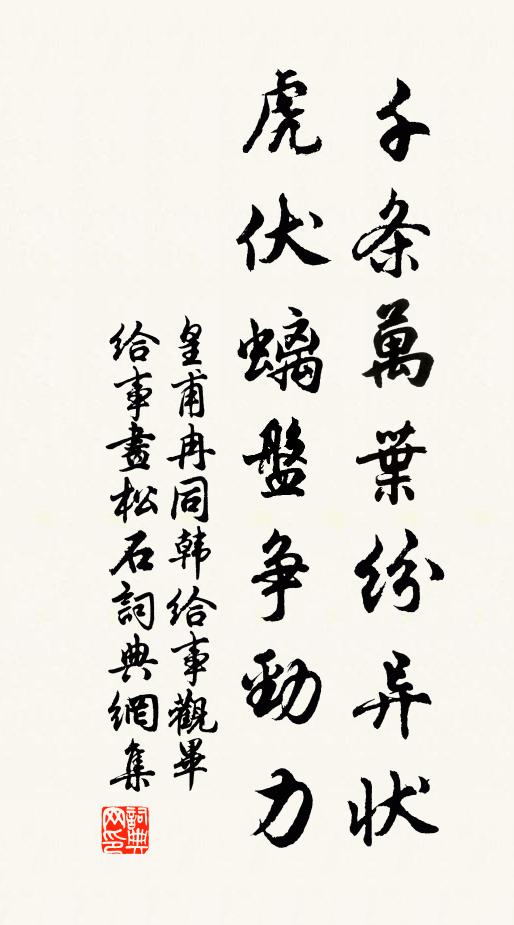 千条萬葉紛异状
虎伏螭盤争勁力
皇甫冉同韩给事觀畢
给事畫松石詞典網集
詞典
网印